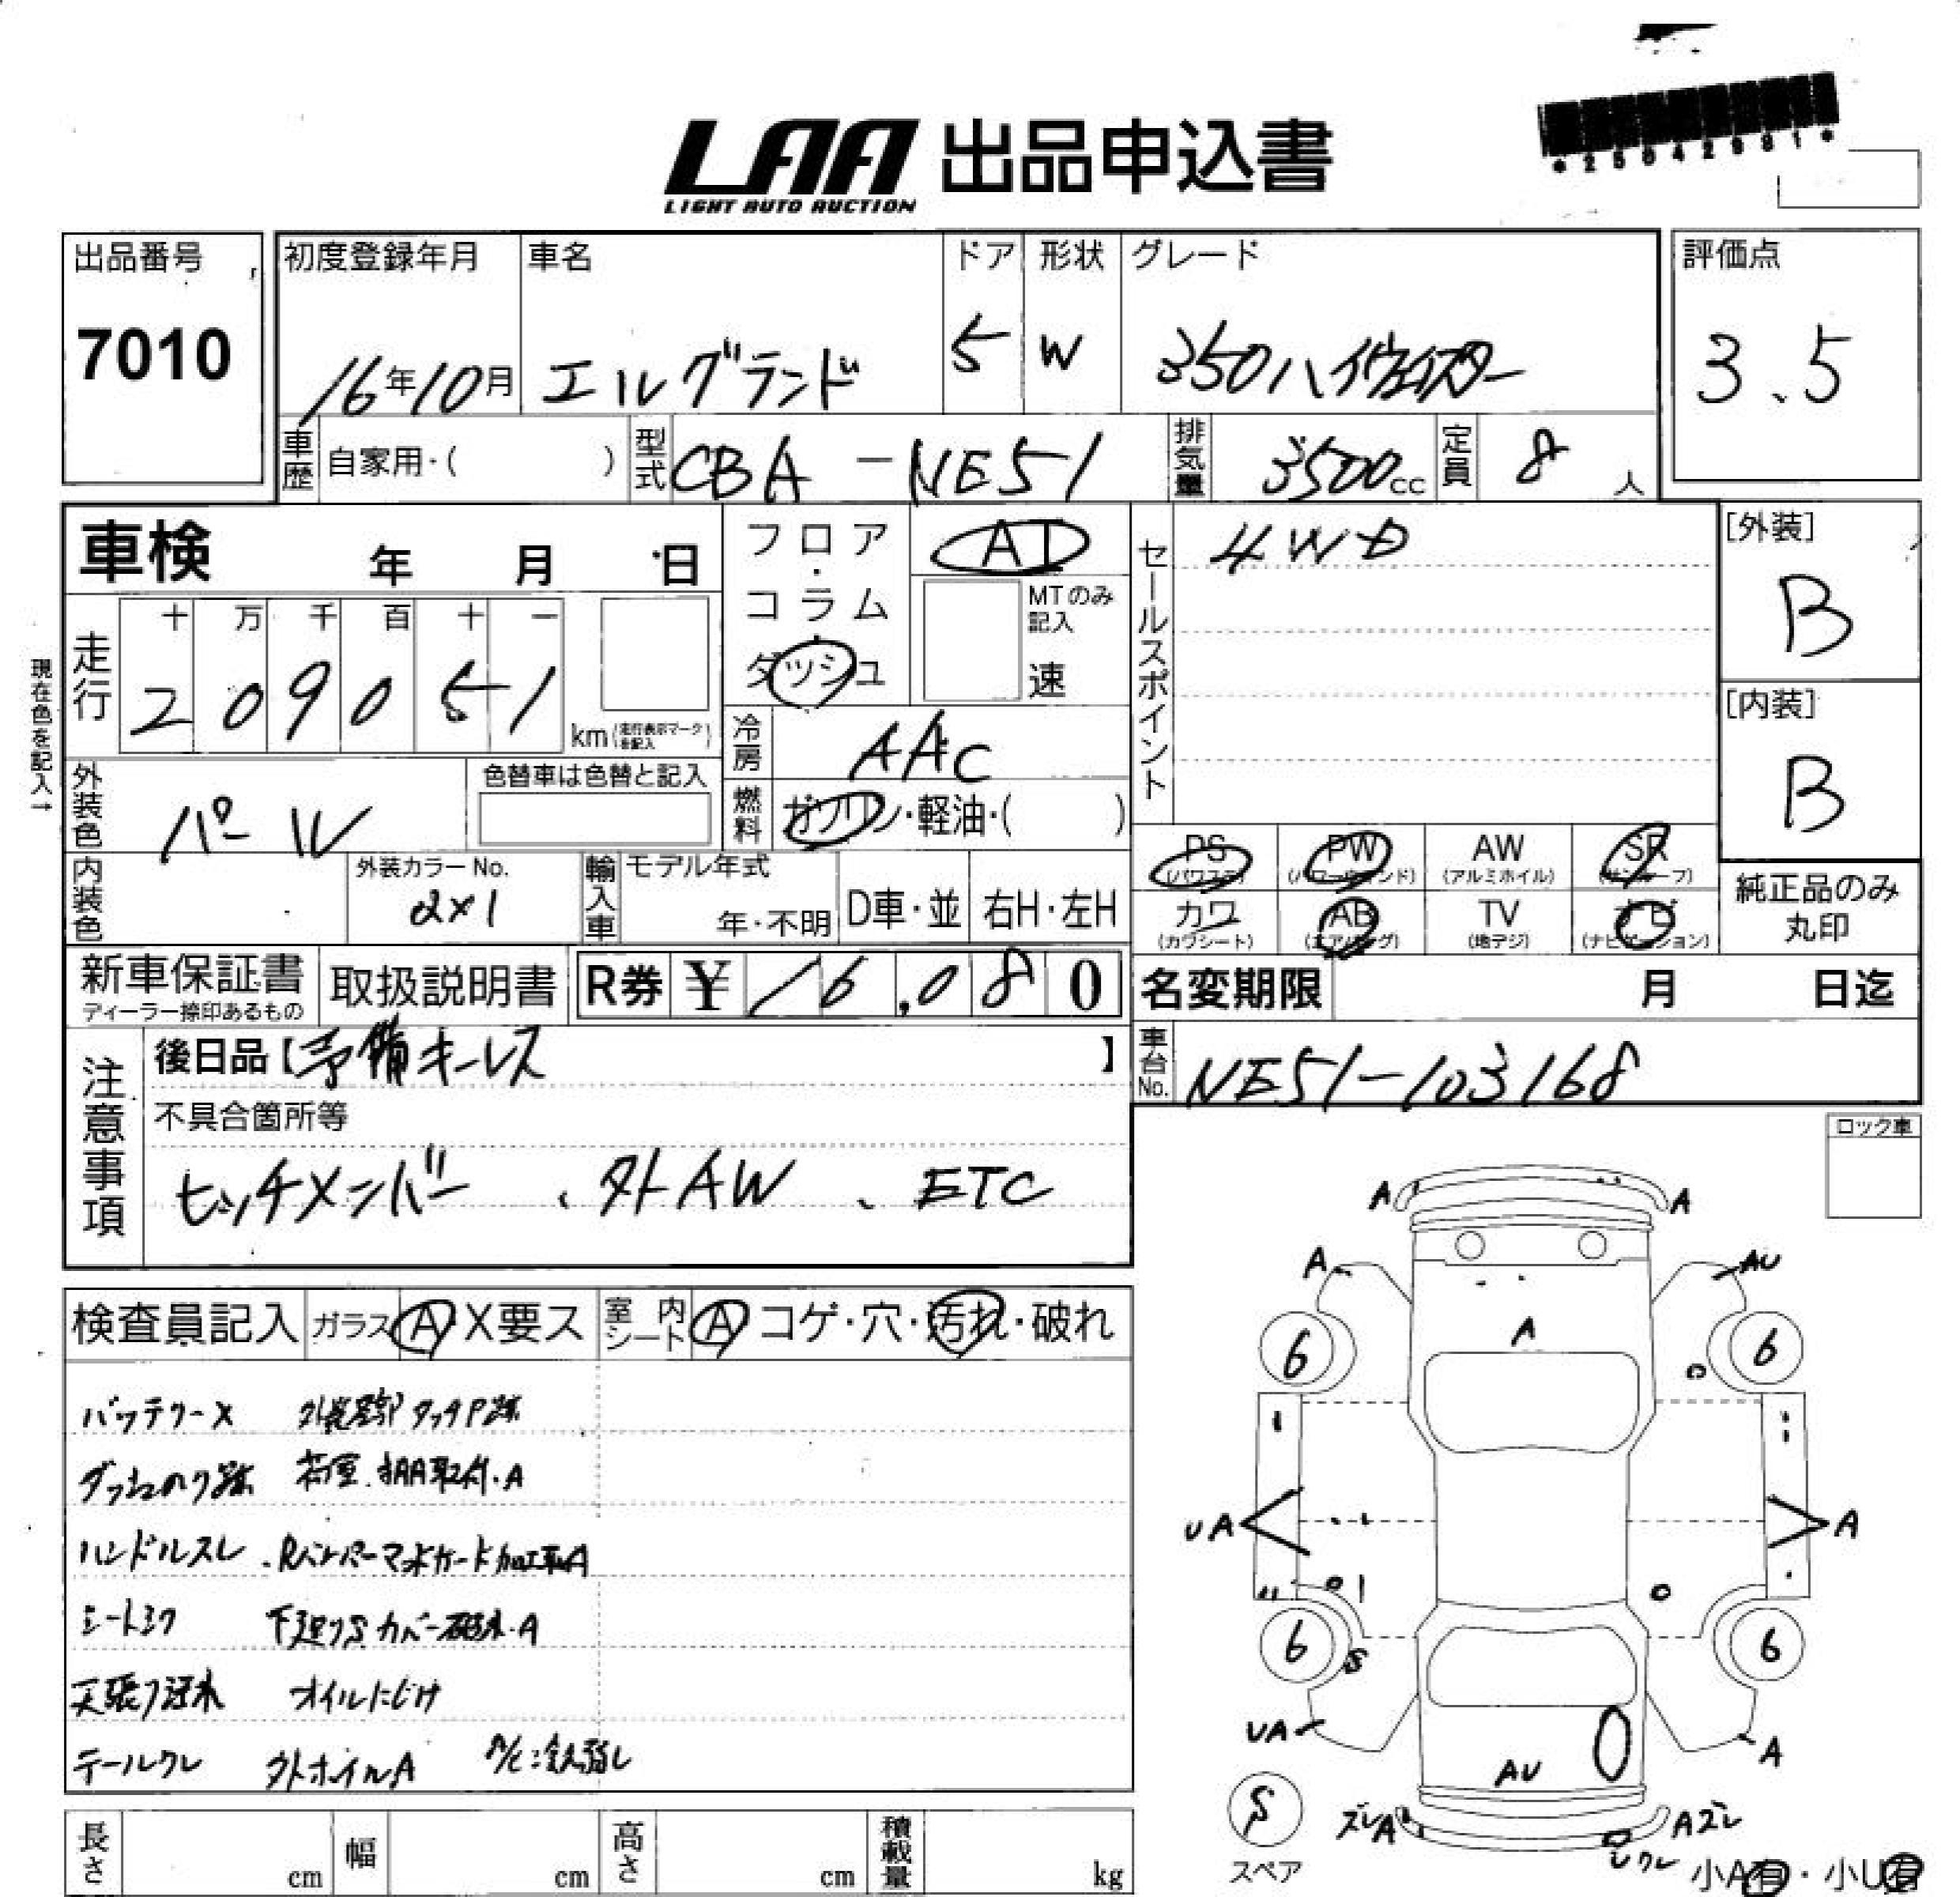 LAA 出品申込書
LIGHT AUTO AUCTION
*25042991*
出品番号
7010
初度登録年月
16年10月
車名
エルグランド
ドア
5
形状
W
グレード
350ハイウェイスター
評価点
3.5
車歴 自家用・( )
型式 CBA-NE51
排気量 3500cc
定員 8人
車検 年 月 日
フロア・コラム・ダッシュ
AT
MTのみ記入
速
セールスポイント
4WD
[外装]
B
[内装]
B
現在色を記入→
走行
十 万 千 百 十 一
2 0 9 0 5 1
km(走行表示マークを記入)
冷房 AAC
外装色 パール
色替車は色替と記入
燃料 ガソリン・軽油・( )
内装色
外装カラーNo.
2×1
輸入車
モデル年式
年・不明
D車・並
右H・左H
PS (パワステ)
PW (パワーウインド)
AW (アルミホイル)
SR (サンルーフ)
カワ (カワシート)
AB (エアバッグ)
TV (地デジ)
ナビ (ナビゲーション)
純正品のみ
丸印
新車保証書
ディーラー捺印あるもの
取扱説明書
R券 ¥ 16,080
名変期限 月 日迄
車台No. NE51-103168
注意事項
後日品【予備キーレス】
不具合箇所等
ヒッチメンバー、外AW、ETC
ロック車
検査員記入 ガラス A X要ス
室内シート A コゲ・穴・汚れ・破れ
バッテリーX
荷室、棚取付.A
ハンドルスレ
シートシワ
オイルにじみ
外ホイルA
A A
A AU
A
6 6
UA A
6 6
S
UA A
AU
S
スペア
ズレA Aズレ
小A有・小U有
長さ cm
幅 cm
高さ cm
積載量 kg